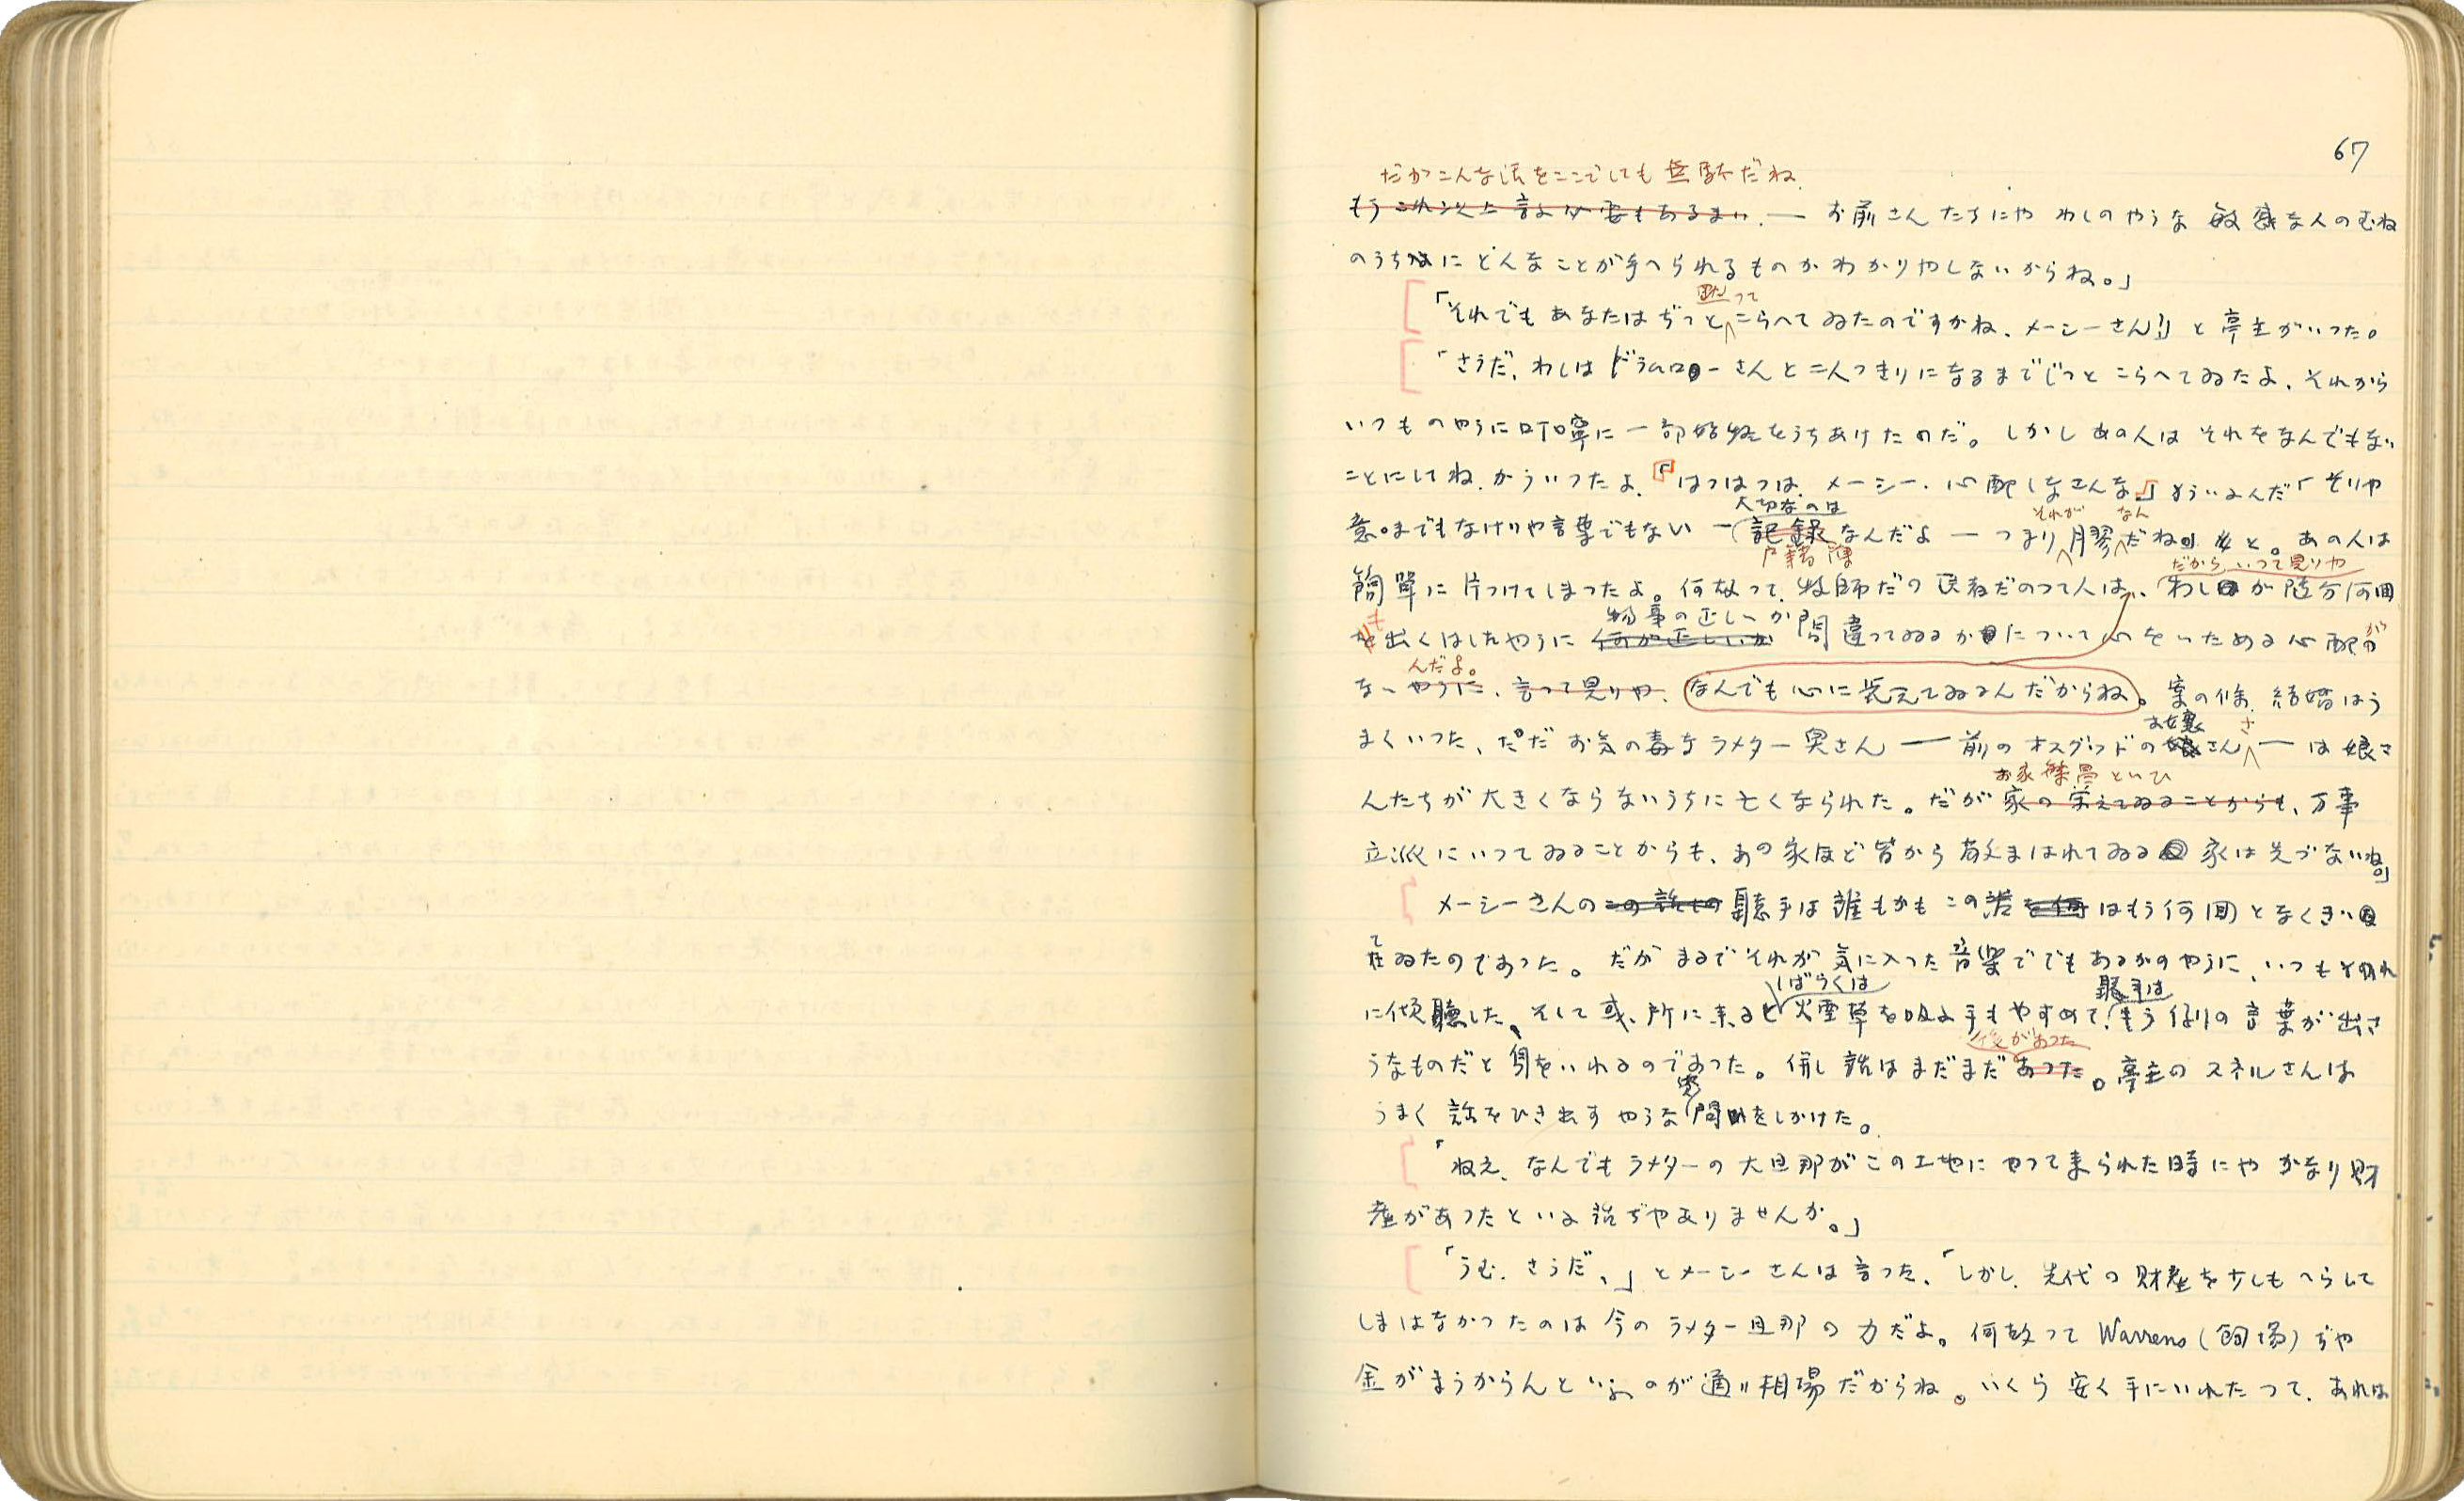 67
だがこんな話をここでしても無駄だね.
もうこれ以上言ふ必要もあるまい. ― お前さんたちにや わしのやうな 敏感な人のむね
のうちにどんなことが考へられるものかわかりやしないからね。」
黙つて
「それでもあなたはぢつとこらへてゐたのですかね、メーシーさん?」と亭主がいつた。
「さうだ、わしはドラムローさんと二人つきりになるまでじつとこらへてゐたよ、それから
いつものやうに叮嚀に一部始終をうちあけたのだ。しかしあの人はそれをなんでもない
ことにしてね、かういつたよ、『はつはつは、メーシー、心配しなさんな』さういふんだ「そりや
大切なのは
それが なん
意味でもなけりや言葉でもない ― 記録なんだよ ― つまり膠だね』と。あの人は
戸籍簿
だから、いつて見りや
簡單に片つけてしまつたよ。何故つて、牧師だの医者だのつて人は、わしが随分何回
物事の正しいか
も出くはしたやうに何が正しいか間違つてゐるかについて心をいためる心配が
んだよ。
ないやうに、言つて見りや、なんでも心に覚えてゐるんだからね。案の條、結婚はう
お嬢 さ
まくいつた、ただお気の毒なラメター奥さん ― 前のオスグッドの娘さん ― は娘さ
お家繁昌といひ
んたちが大きくならないうちに亡くなられた。だが家の栄えてゐることからも、万事
立派にいつてゐることからも、あの家ほど皆から敬まはれてゐる家は先づないね」
メーシーさんのこの話の聴手は誰もかもこの話を何はもう何回となくきい
て
ゐたのであつた。だがまるでそれが気に入つた音楽ででもあるかのやうに、いつもそれ
しばらくは 聴手は
に傾聴した、そして或る所に来ると煙草を吸ふ手もやすめて、もう例の言葉が出さ
後があつた
うなものだと身をいれるのであつた。併し話はまだまだあつた。亭主のスネルさんは
うまく話をひき出すやうな問をしかけた。
「ねえ、なんでもラメターの大旦那がこの土地にやつて来られた時にやかなり財
産があつたといふ話ぢやありませんか。」
「うむ、さうだ、」とメーシーさんは言つた、「しかし、先代の財産を少しもへらして
しまはなかつたのは今のラメター旦那の力だよ。何故つて Warrens (飼場) ぢや
金がまうからんといふのが通り相場だからね。いくら安く手にいれたつて、あれは